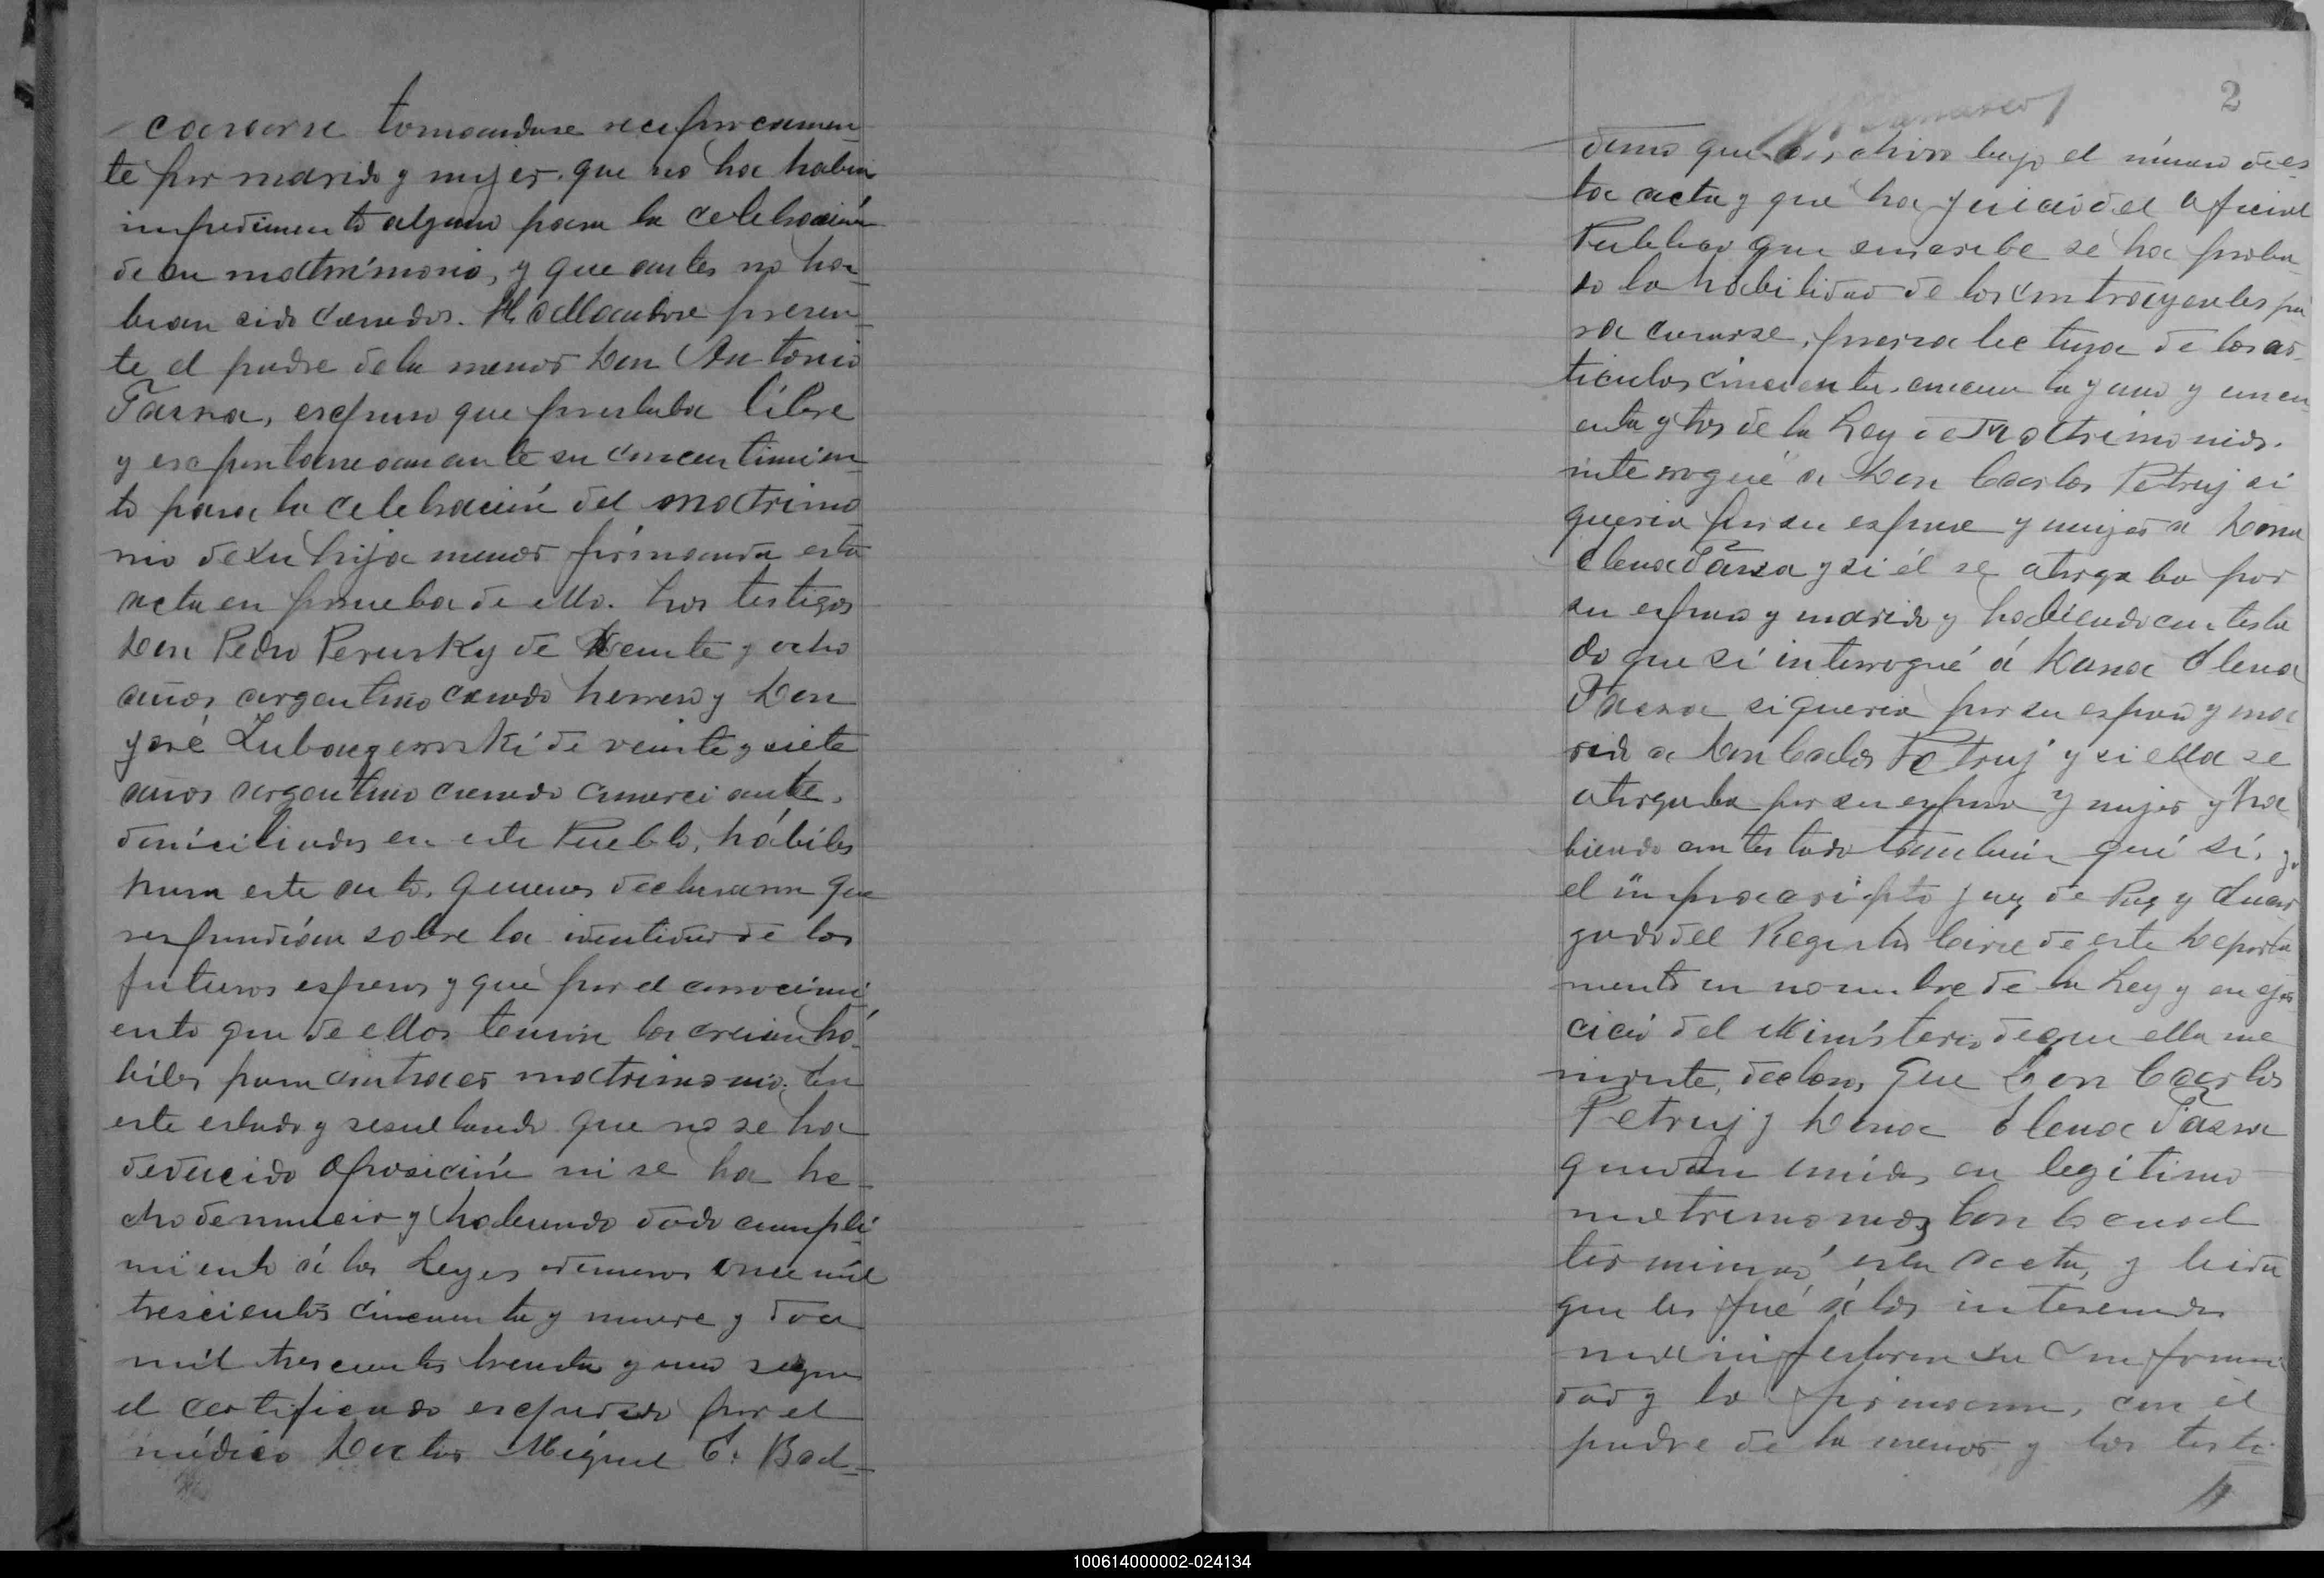 casarse tomandose reciprocamen-
te por marido y mujer. que no ha habia
impedimento alguno para la celebración
de su matrimonio, y que antes no ha-
bian sido casados. Hallandose presen-
te el padre de la menor Don Antonio
Tarna, expuso que prestaba libre
y espontaneamente su consentimien-
to para la celebración del matrimo-
nio de su hija menor firmando esta
acta en prueba de ello. Los testigos
Don Pedro Perusky de veinte y ocho
años argentino casado herrero y Don
José de veinte y siete
años argentino casado comerciante.
domiciliados en este Pueblo, hábiles
para este acto. quienes declararon que
respondian sobre la identidad de los
futuros esposos y que por el conocimi-
ento que de ellos tenian los creian há-
biles para contraer matrimonio. En
este estado y resultando que no se ha
deducido oposición ni se ha he-
cho denuncia y habiendo dado cumpli-
miento á las Leyes números once mil
trescientos cincuenta y nueve y doce
mil trescientos treinta y uno segun
el certificado expedido por el
médico Doctor Miguel C. Bad-
2
demo que archivo bajo el número de es-
ta acta y que ha juicio del oficial
Publico que suscribe se ha proba-
do la habilidad de los contrayentes pa
ra casarse, previa lectura de los ar-
ticulos cincuenta, cincuenta y uno y cincu
enta y tres de la Ley de Matrimonio.
interrogué a Don Carlos Petruj si
queria por su esposa y mujer a Dona
Elena Tarna y si él se otorgaba por
su esposo y marido y habiendo contesta
do que sí interrogué á Dona Elena
Tarna si queria por su esposo y ma
rido a Don Carlos Petruj y si ella se
otorgaba por su esposa y mujer y ha
biendo contestado tambien que sí, yo
el infrascripto Juez de Paz y Encar
gado del Registro Civil de este Departa
mento en nombre de la Ley y en ejer
cicio del Ministerio de que ella me
inviste, declaro, que Don Carlos
Petruj y Dona Elena Tarna
quedan unidos en legitimo
matrimonio, Con lo cual
terminó esta acta, y leida
que les fué á los interesados
manifestaron su conformi
dad y la firmaron, con el
padre de la menor y los testi-
100614000002-024134